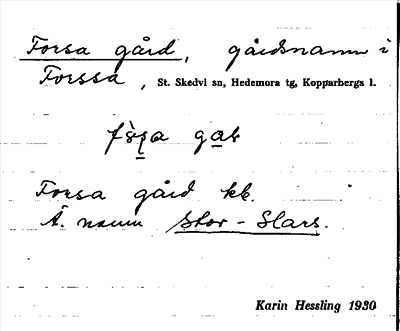 Forsa gård, gårdsnamn i
Forssa, St. Skedvi sn, Hedemora tg, Kopparbergs l.
Forsa gård kk.
Ä. namn Stor-Slars.
Karin Hessling 1930